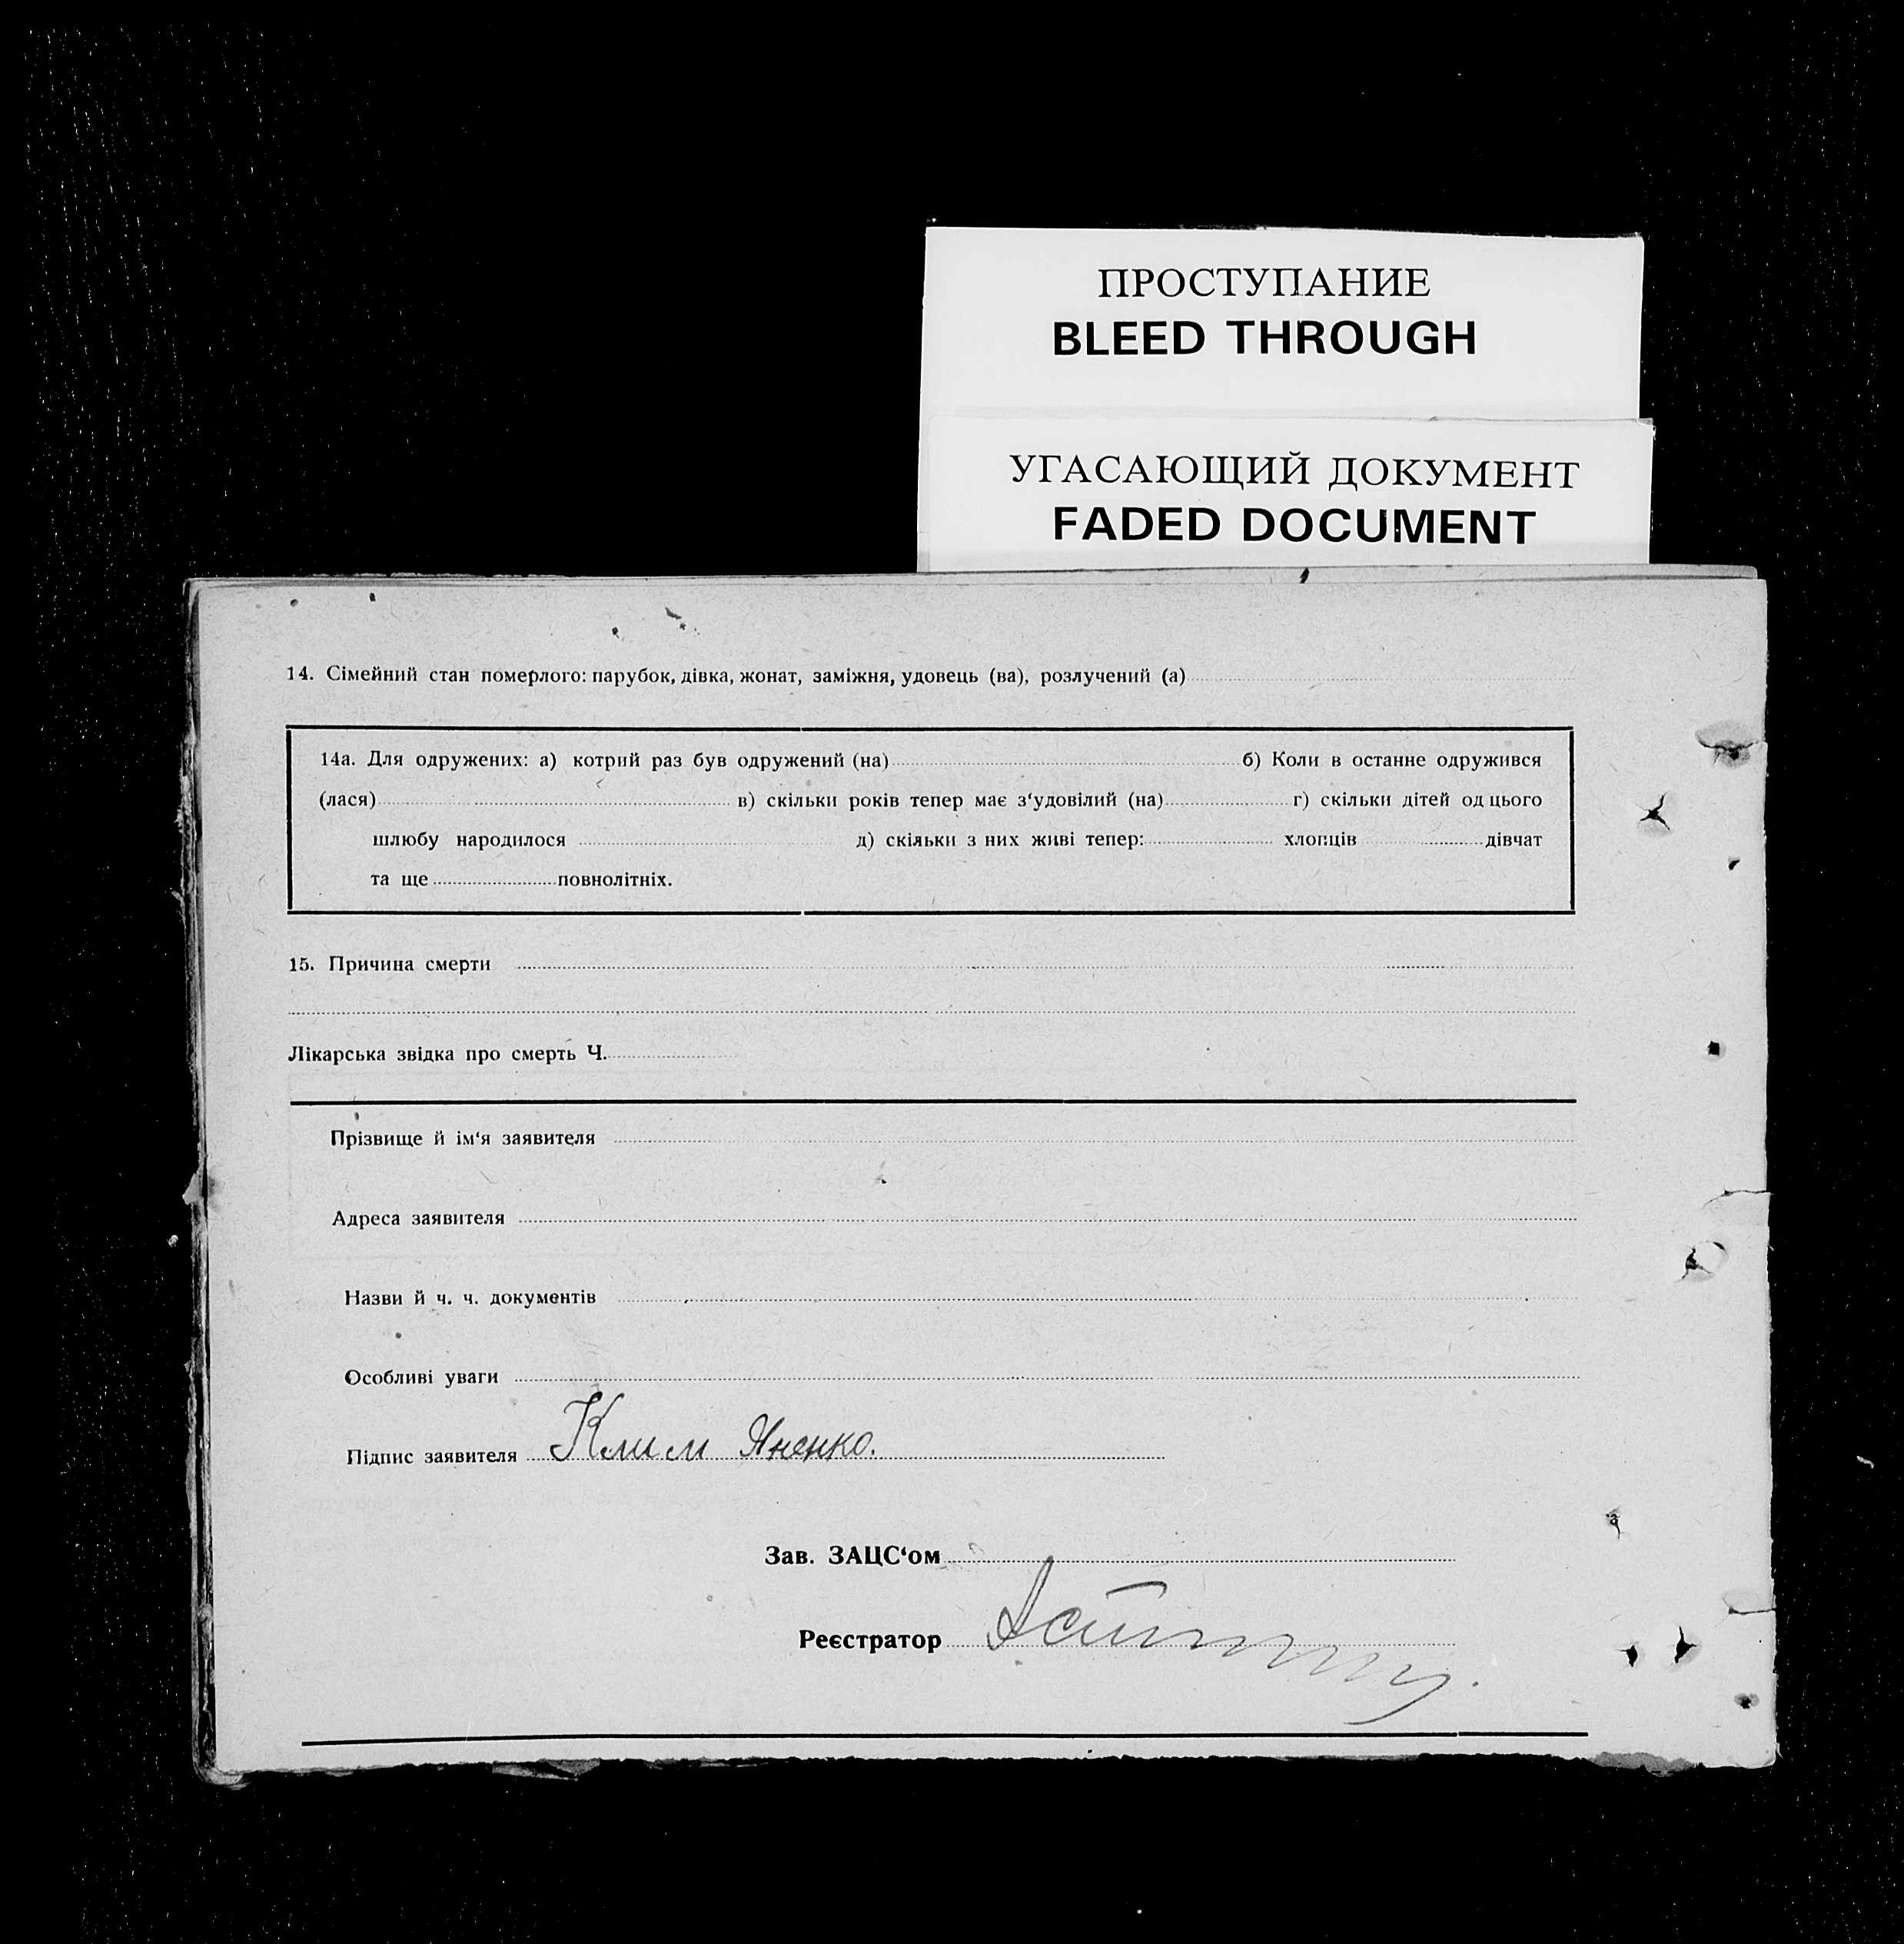 ПРОСТУПАНИЕ
BLEED THROUGH
УГАСАЮЩИЙ ДОКУМЕНТ
FADED DOCUMENT
14. Сімейний стан померлого: парубок, дівка, жонат, заміжня, удовець (ва), розлучений (а)
14а. Для одружених: а) котрий раз був одружений (на) б) Коли в останне одружився
(лася) в) скільки років тепер має з‘удовілий (на) г) скільки дітей од цього
шлюбу народилося д) скільки з них живі тепер: хлопців дівчат
та ще повнолітніх.
15. Причина смерти
Лікарська звідка про смерть Ч.
Прізвище й ім‘я заявителя
Адреса заявителя
Назви й ч. ч. документів
Особливі уваги
Підпис заявителя Клим Яненко.
Зав. ЗАЦС‘ом
Реєстратор